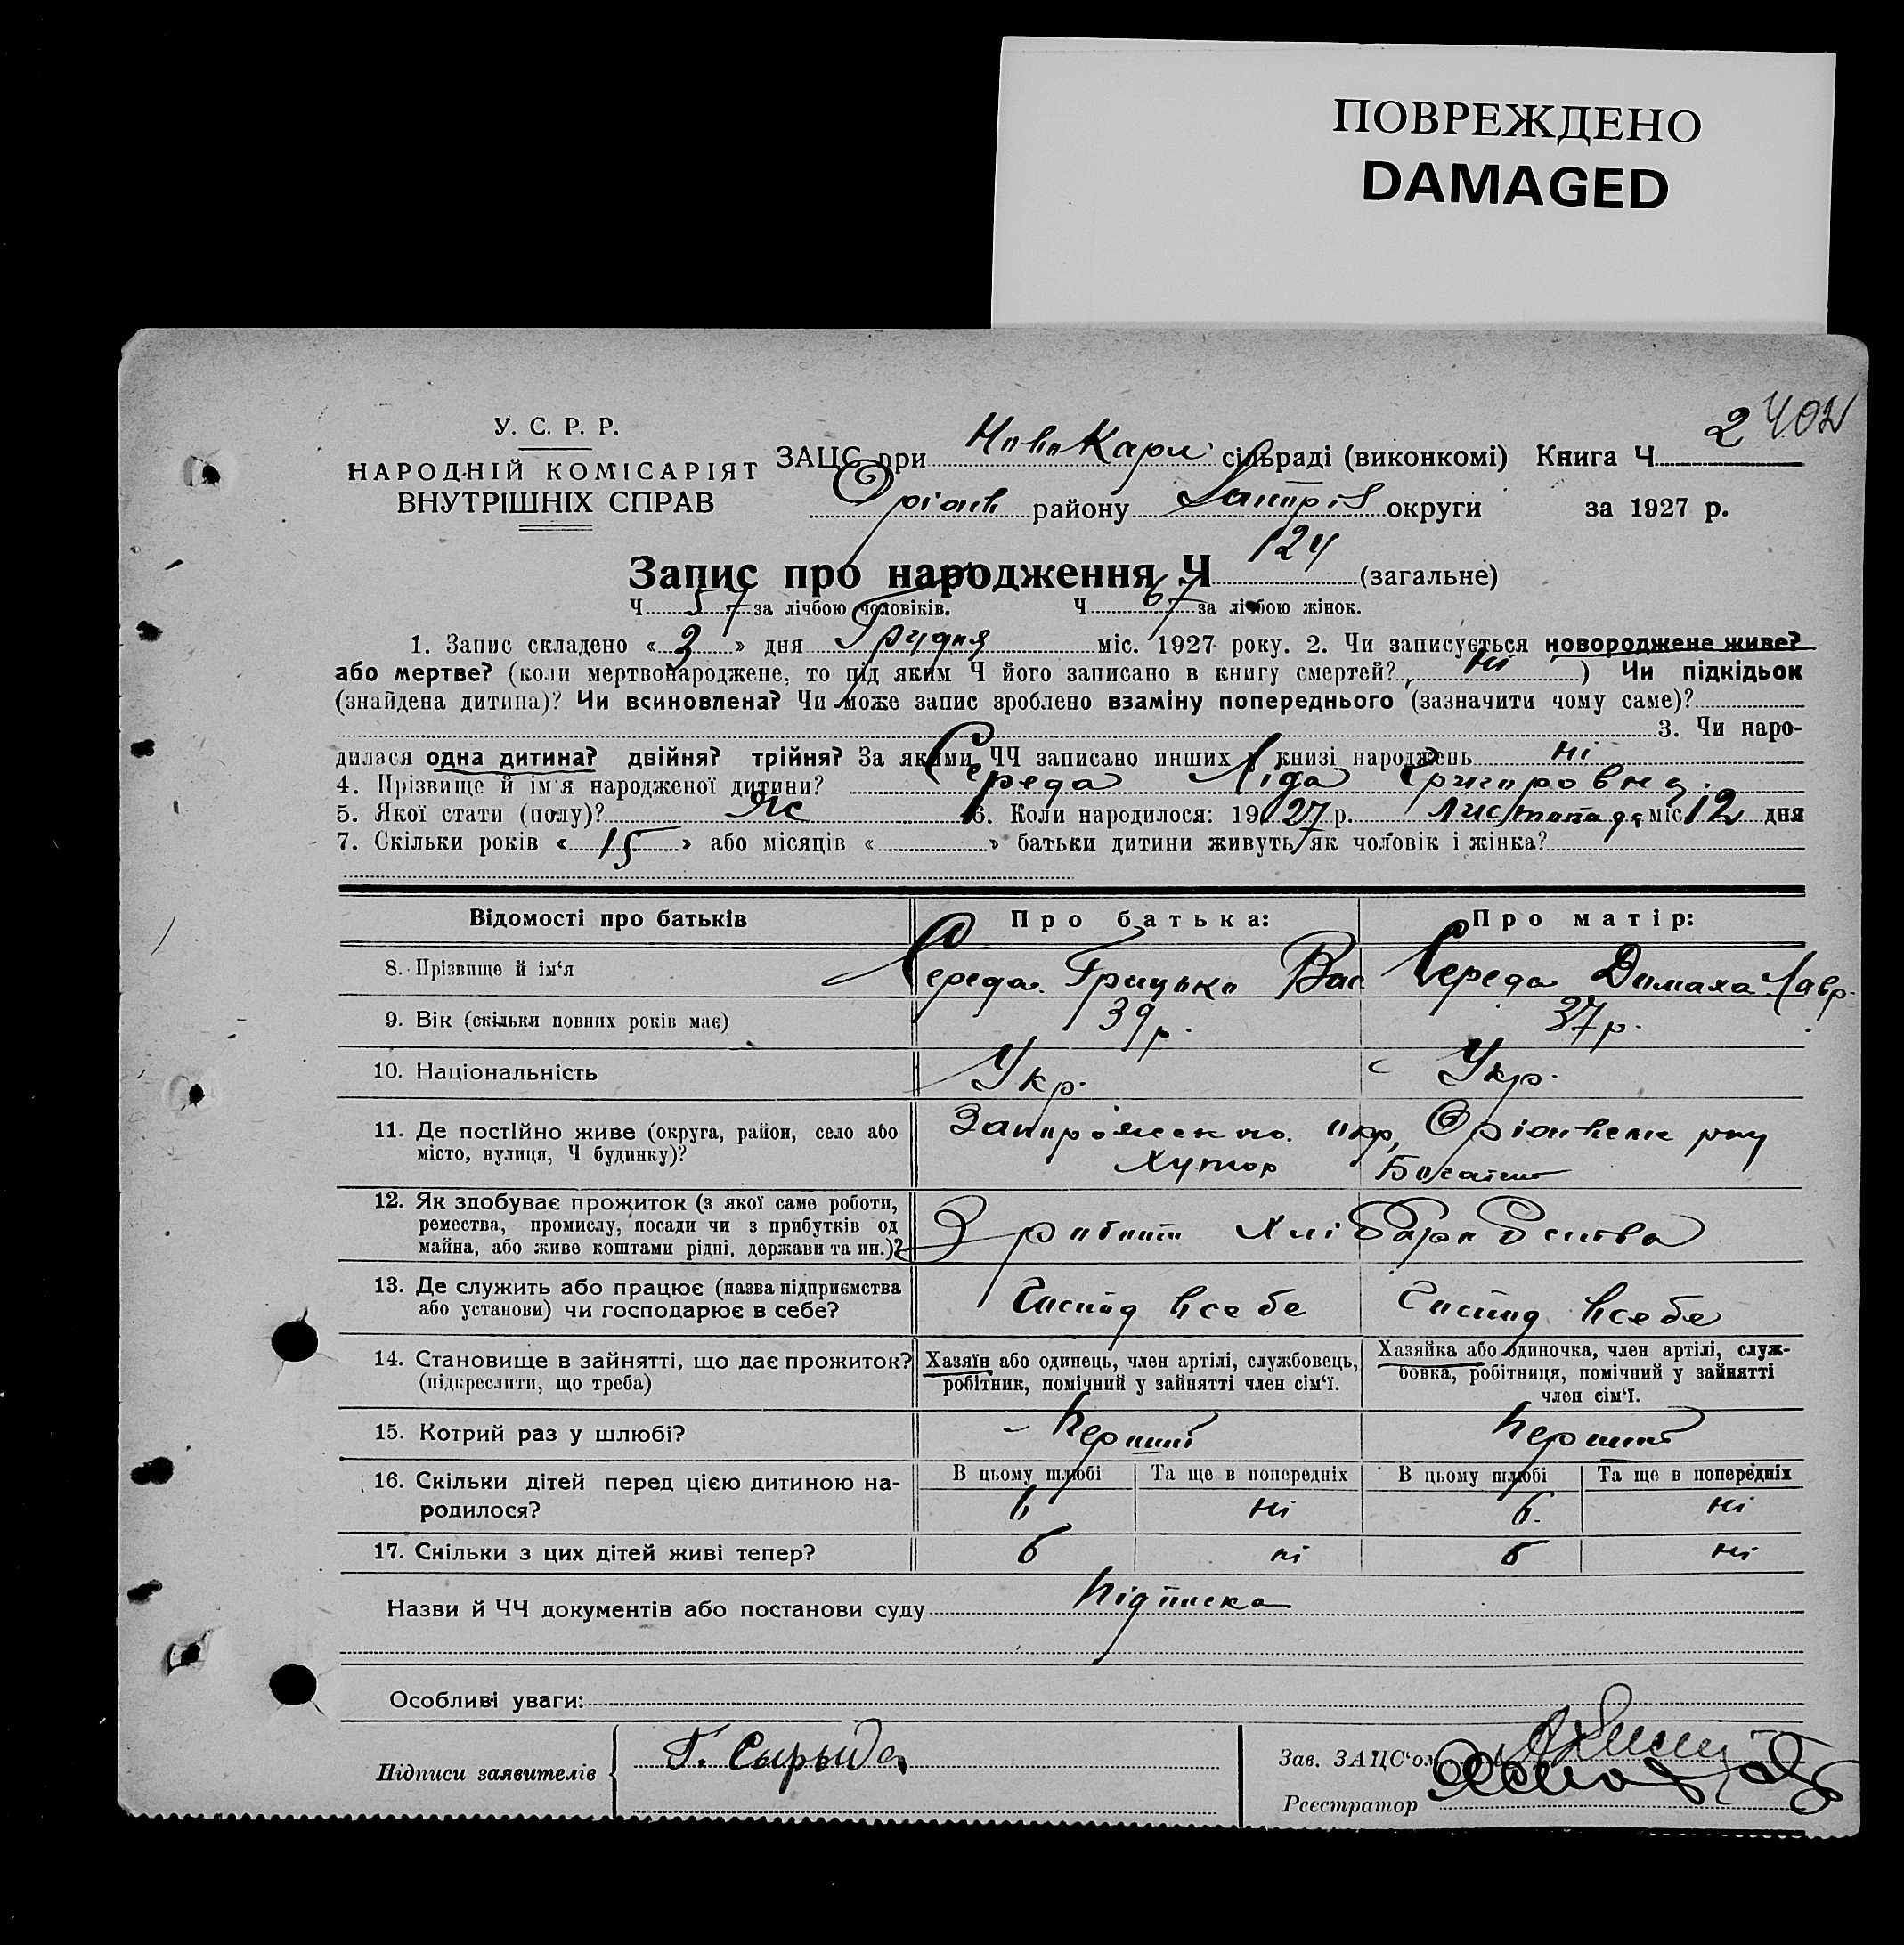 ПОВРЕЖДЕНО
DAMAGED
402
У. С. Р. Р.
НАРОДНІЙ КОМІСАРІЯТ
ВНУТРІШНІХ СПРАВ
ЗАЦС при Ново Карл сільраді (виконкомі) Книга Ч 2
Оріхів району округи за 1927 р.
Запис про народження Ч 124 (загальне)
Ч 57 за лічбою чоловіків. Ч 67 за лічбою жінок.
1. Запис складено « 3 » дня Грудня міс. 1927 року. 2. Чи записується новороджене живе?
або мертве? (коли мертвонароджене, то під яким Ч його записано в книгу смертей? ні ) Чи підкідьок
(знайдена дитина)? Чи всиновлена? Чи може запис зроблено взаміну попереднього (зазначити чому саме)?
3. Чи наро-
дилася одна дитина? двійня? трійня? За якими ЧЧ записано инших у книзі народжень ні
4. Прізвище й ім'я народженої дитини? Середа Ліда
5. Якої стати (полу)? Ж 6. Коли народилося: 1927 р. Листопада міс 12 дня
7. Скільки років « 15 » або місяців « » батьки дитини живуть як чоловік і жінка?
Відомості про батьків Про батька: Про матір:
8. Прізвище й ім'я Середа Грицько Вас Середа Домаха Лавр.
9. Вік (скільки повних років має) 39 р. 37 р.
10. Національність Укр. Укр.
11. Де постійно живе (округа, район, село або
місто, вулиця, Ч будинку)?
окр, Хутор
12. Як здобуває прожиток (з якої саме роботи,
ремества, промислу, посади чи з прибутків од
майна, або живе коштами рідні, держави та ин.)?
З работи
13. Де служить або працює (назва підприємства
або установи) чи господарює в себе?
всебе всебе
14. Становище в зайнятті, що дає прожиток?
(підкреслити, що треба)
Хазяїн або одинець, член артілі, службовець,
робітник, помічний у зайнятті член сім'ї.
Хазяйка або одиночка, член артілі, служ-
бовка, робітниця, помічний у зайнятті
член сім'ї.
15. Котрий раз у шлюбі? Перший Перший
16. Скільки дітей перед цією дитиною на-
родилося?
В цьому шлюбі Та ще в попередніх В цьому шлюбі Та ще в попередніх
6 ні 6. ні
17. Скільки з цих дітей живі тепер? 6 ні 6 ні
Назви й ЧЧ документів або постанови суду Підписка
Особливі уваги:
Підписи заявителів Г. Сырыда
Зав. ЗАЦС'ом
Реєстратор